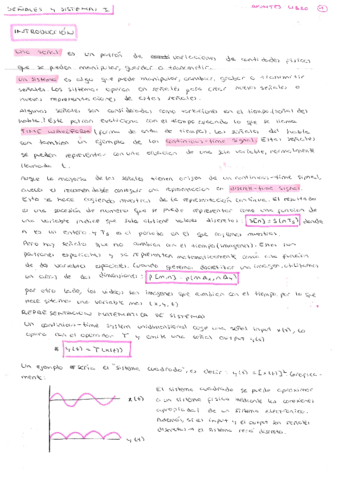 SEÑALES Y SISTEMAS I
APUNTES LIBRO 1
INTRODUCCIÓN
Una señal es un patrón de variaciones de cantidades físicas
que se pueden manipular, guardar o transmitir.
Un sistema es algo que puede manipular, cambiar, grabar o transmitir
señales. Los sistemas operan en señales para crear nuevas señales o
nuevas representaciones de estas señales.
Algunas señales son consideradas como variaciones en el tiempo (señal del
habla). Este patrón evoluciona con el tiempo creando lo que se llama
time waveform (forma de onda de tiempo). Las señales del habla
son también un ejemplo de las continuous-time signal. Estas señales
se pueden representar con una ecuación de una sola variable, normalmente
llamada t.
Aunque la mayoría de las señales tienen origen de un continuous-time signal,
suele ser recomendable conseguir una representación en discrete-time signal.
Esto se hace cogiendo muestras de la representación continua. El resultado
es una sucesión de números que se puede representar como una función de
una variable índice que solo obtiene valores discretos. s[n] = s(nTs) donde
n es un entero y Ts es el periodo en el que cogemos muestras.
Pero hay señales que no cambian con el tiempo (imágenes). Estas son
patrones espaciales y se representan matemáticamente como una función
de dos variables espaciales. Cuando queremos discretizar una imagen, utilizamos
un array de dos dimensiones: p[m,n] = p(mΔx, nΔy)
por otro lado, los videos son imágenes que cambian con el tiempo por lo que
necesitamos una variable más: (x, y, t)
REPRESENTACIÓN MATEMÁTICA DE SISTEMAS
Un continuous-time system unidimensional coge una señal input x(t), lo
opera con el operador T y emite una señal output y(t)
y(t) = T{x(t)}
Un ejemplo sería el "sistema cuadrado", es decir: y(t) = [x(t)]² Gráfica-
mente:
x(t)
y(t)
El sistema cuadrado se puede aproximar
a un sistema físico mediante las conexiones
apropiadas de un sistema electrónico.
Además, si el input y el output son señales
discretas → el sistema será discreto.